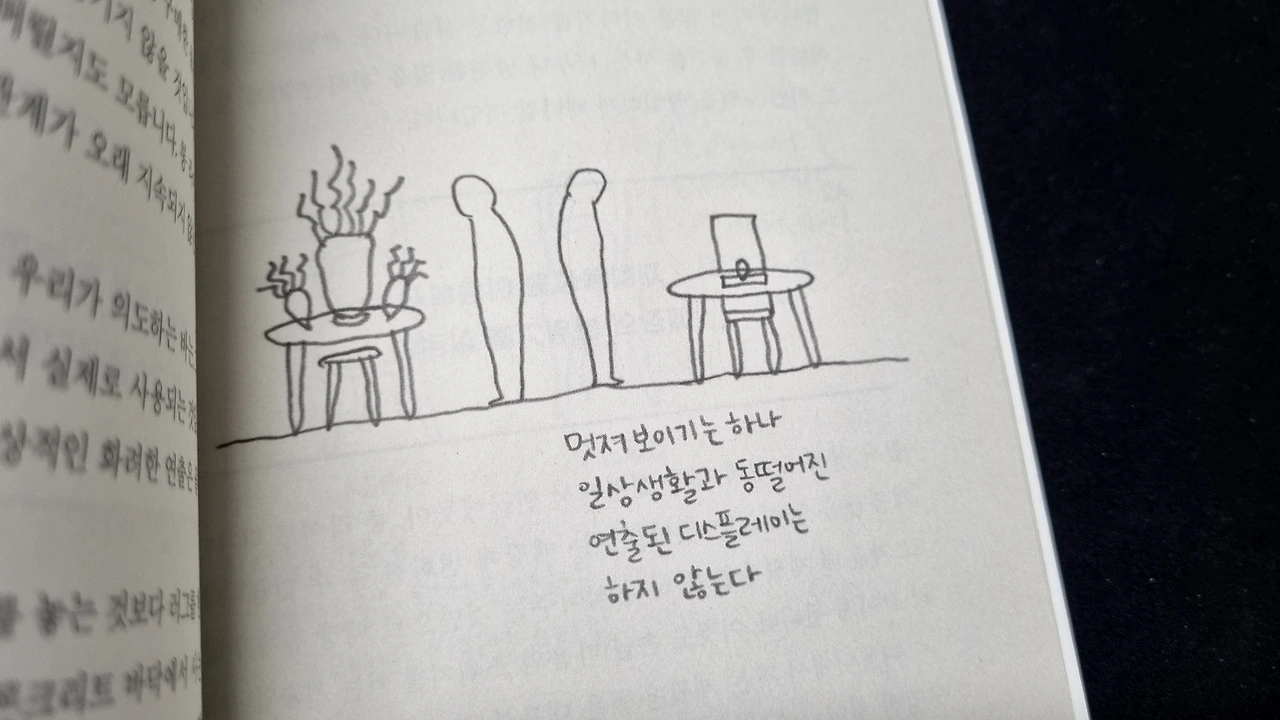 기지 않을
버릴지도 모릅니다.
관계가 오래 지속되기 않을
우리가 의도하는 바는
서 실제로 사용되는 것
상적인 화려한 연출은
놓는 것보다 러그를
콘크리트 바닥에서
멋져 보이기는 하나
일상생활과 동떨어진
연출된 디스플레이는
하지 않는다